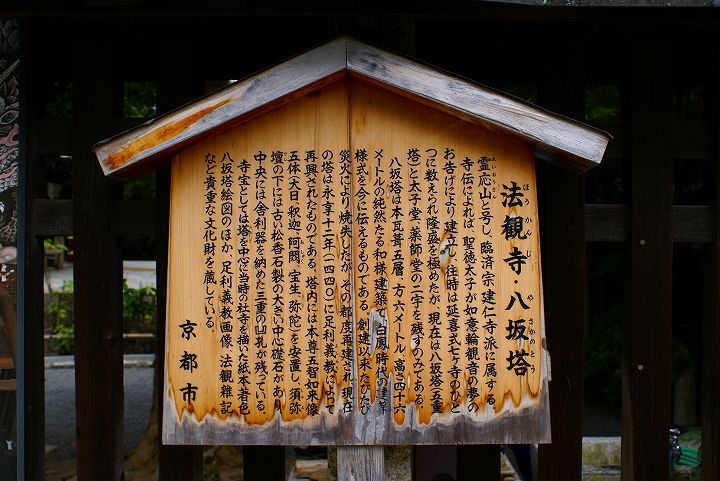 法観寺・八坂塔
ほうかんじ やさかのとう
霊応山と号し、臨済宗建仁寺派に属する。
れいおうざん
寺伝によれば、聖徳太子が如意輪観音の夢の
お告げにより建立し、往時は延喜式七ヶ寺のひと
つに数えられ隆盛を極めたが、現在は八坂塔（五重
塔）と太子堂、薬師堂の二宇を残すのみである。
八坂塔は本瓦葺五層、方六メートル、高さ四十六
メートルの純然たる和様建築で、白鳳時代の建築
様式を今に伝えるものである。創建以来たびたび
災火により焼失したが、その都度再建され、現在
の塔は、永享十二年（一四四〇）に足利義教によって
再興されたものである。塔内には本尊五智如来像
五体（大日、釈迦、阿閦、宝生、弥陀）を安置し、須弥
壇の下には古い松香石製の大きい中心礎石があり、
中央には舎利器を納めた三重の凹孔が残っている。
寺宝としては、塔を中心に当時の社寺を描いた紙本着色
八坂塔絵図のほか、足利義教画像、法観雑記
など貴重な文化財を蔵している。
京都市